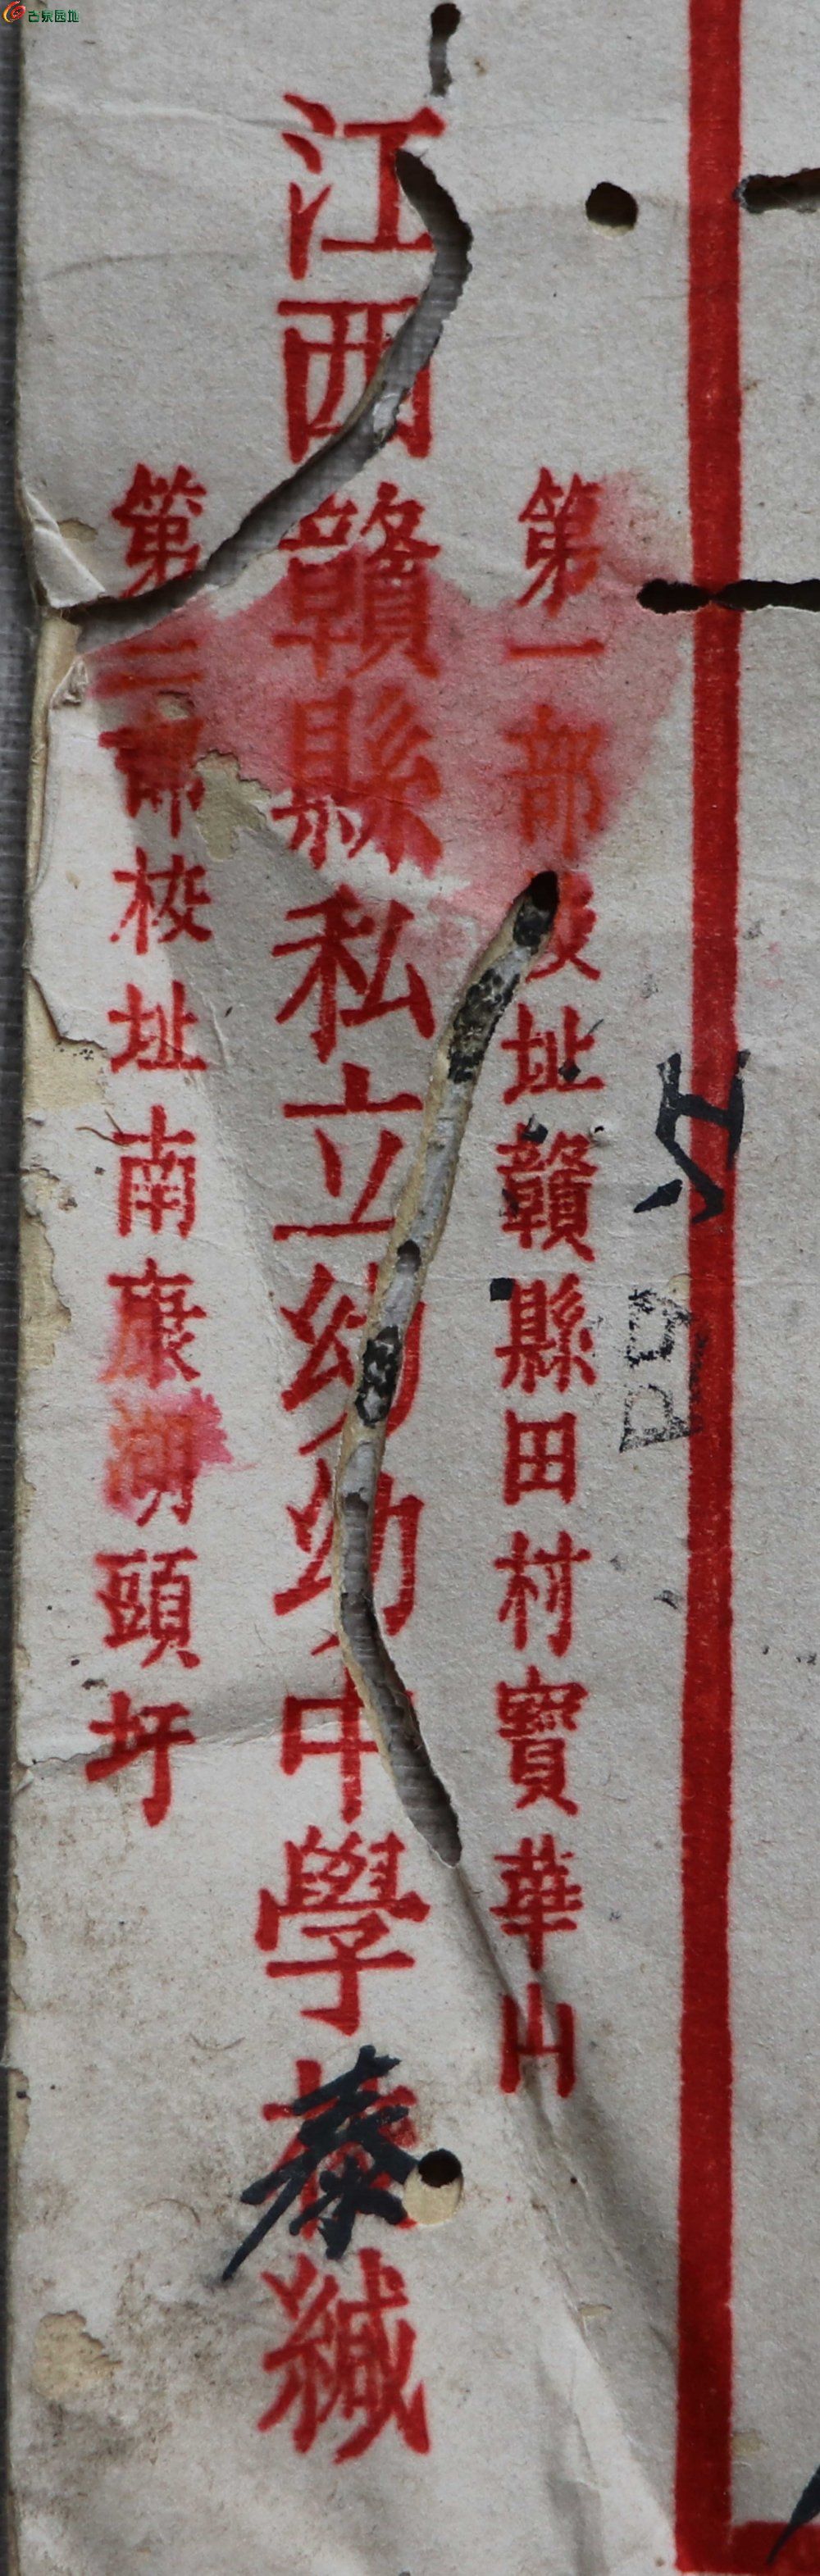 古泉园地
第一部校址贛縣田村寶華山
江西贛縣私立幼幼中學泰緘
第二部校址南康湖頭圩